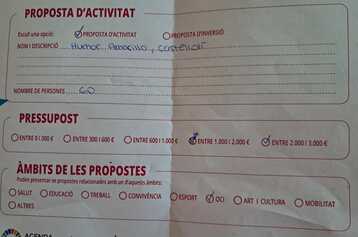 PROPOSTA D'ACTIVITAT
Escull una opció: PROPOSTA D'ACTIVITAT PROPOSTA D'INVERSIÓ
NOM I DESCRIPCIÓ Humor Amarillo, Castelldf
NOMBRE DE PERSONES 60
PRESSUPOST
ENTRE 0 I 300 € ENTRE 300 I 600 € ENTRE 600 I 1.000 € ENTRE 1.000 I 2.000 € ENTRE 2.000 I 3.000 €
ÀMBITS DE LES PROPOSTES
Poden presentar-se propostes relacionades amb un d'aquests àmbits:
SALUT EDUCACIÓ TREBALL CONVIVÈNCIA ESPORT OCI ART I CULTURA MOBILITAT
ALTRES
AGENDA